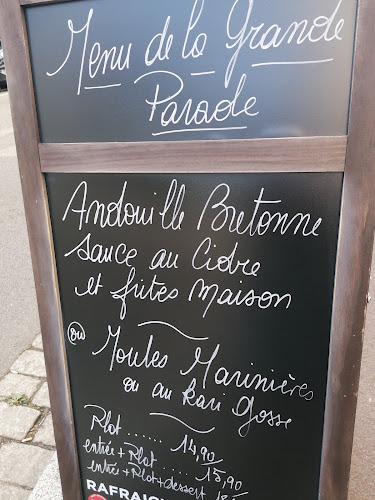 Menu de la Grande
Parade
Andouille Bretonne
sauce au Cidre
et frites Maison
(ou)
Moules Marinières
ou au Kari Gosse
Plat ...... 14,90
entrée + Plat ..... 15,90
entrée + Plat + dessert
RAFRAI